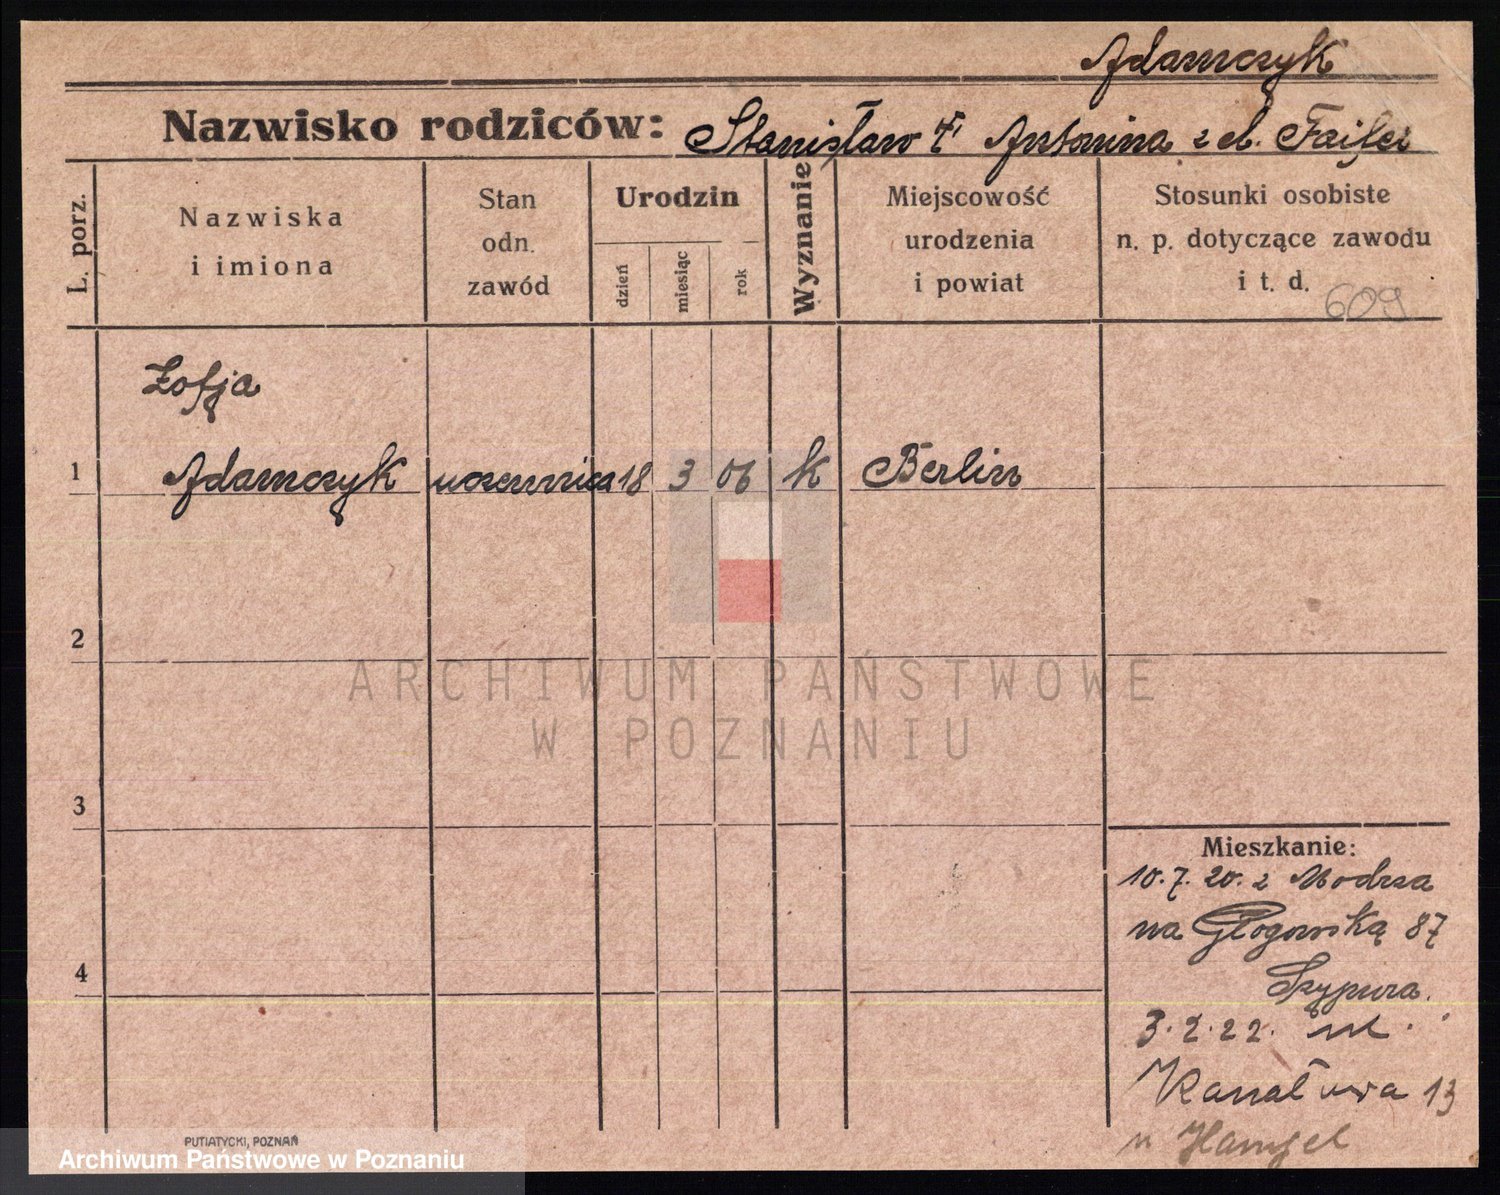 Adamczyk
Nazwisko rodziców: Stanisław i Antonina z d.
L. porz.
Nazwiska
i imiona
Stan
odn.
zawód
Urodzin
dzień
miesiąc
rok
Wyznanie
Miejscowość
urodzenia
i powiat
Stosunki osobiste
n. p. dotyczące zawodu
i t. d.
609
Zofja
1 Adamczyk uczennica 18 3 06 k Berlin
2
ARCHIWUM PAŃSTWOWE
W POZNANIU
3
Mieszkanie:
10.7.20. z Modrza
na Głogowską 87
Szypura.
4
3.2.22. ul.
Kanałowa 13
PUTIATYCKI, POZNAŃ
Archiwum Państwowe w Poznaniu